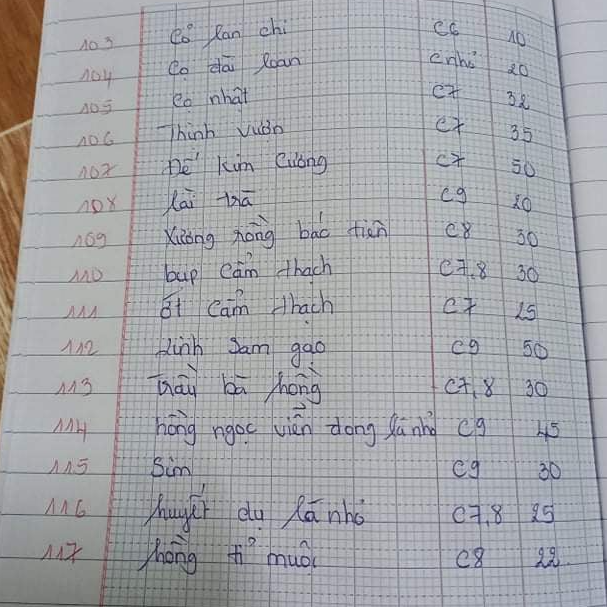 103 Cỏ lan chi C6 10
104 Cọ đài loan Cnhỏ 20
105 Cọ nhật C7 32
106 Thịnh vượn C7 35
107 Đế kim Cương C7 50
108 lài trà C9 20
109 Xương rồng bác tiên C8 30
110 bup Cẩm thạch C7,8 30
111 ớt Cẩm thạch C7 25
112 Linh Sam gạo C9 50
113 Trầu bà hồng C7,8 30
114 hồng ngọc viễn dong lá nhỏ C9 45
115 Sim C9 30
116 huyết dụ lá nhỏ C7,8 25
117 hồng tỉ muội C8 22